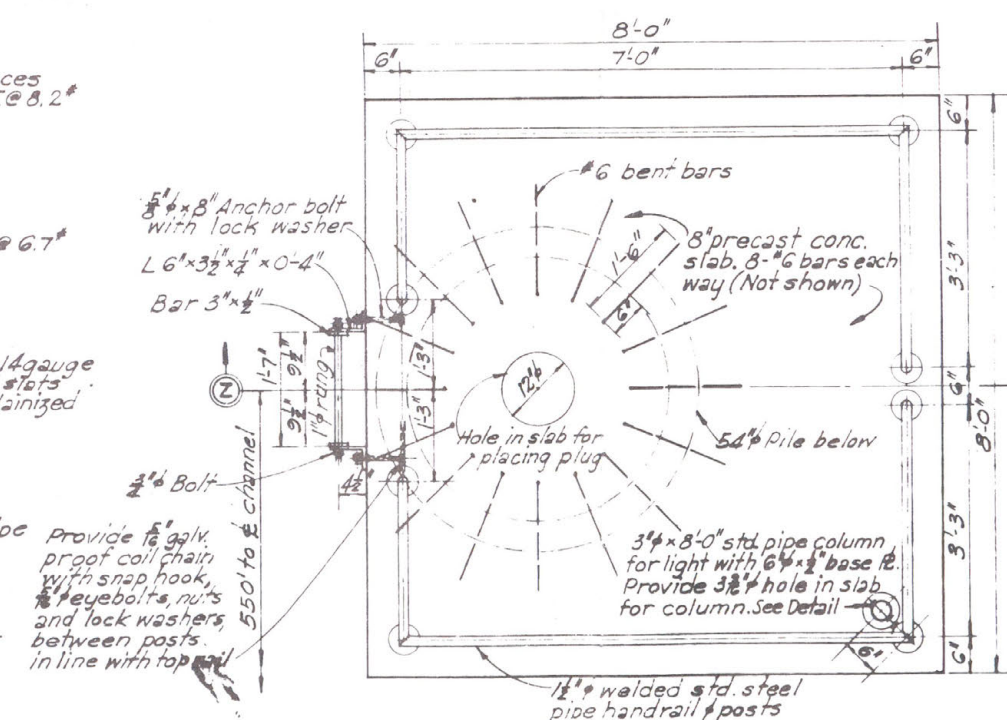 8'-0"
6" 7'-0" 6"
ces
@ 8.2#
#6 bent bars
5/8"φ×8" Anchor bolt
with lock washer
@ 6.7#
L 6"×3½"×¼"×0'-4"
Bar 3"×½"
8" precast conc.
slab. 8-#6 bars each
way (Not shown)
1'-6"
6"
6"
3'-3"
6"
3'-3"
6"
8'-0"
14 gauge
slats
1'-7"
9½"
9½"
1"φ rung
1'-3"
1'-3"
12"φ
Z
Hole in slab for
placing plug
54"φ Pile below
¾"φ Bolt
4½"
550' to ℄ channel
Provide 5/16" galv.
proof coil chain
with snap hook,
eyebolts, nuts
and lock washers,
between posts.
in line with top rail
3"φ×8'-0" std. pipe column
for light with 6"φ×½" base ℄.
Provide hole in slab
for column. See Detail
6"
1½"φ welded std. steel
pipe handrail & posts